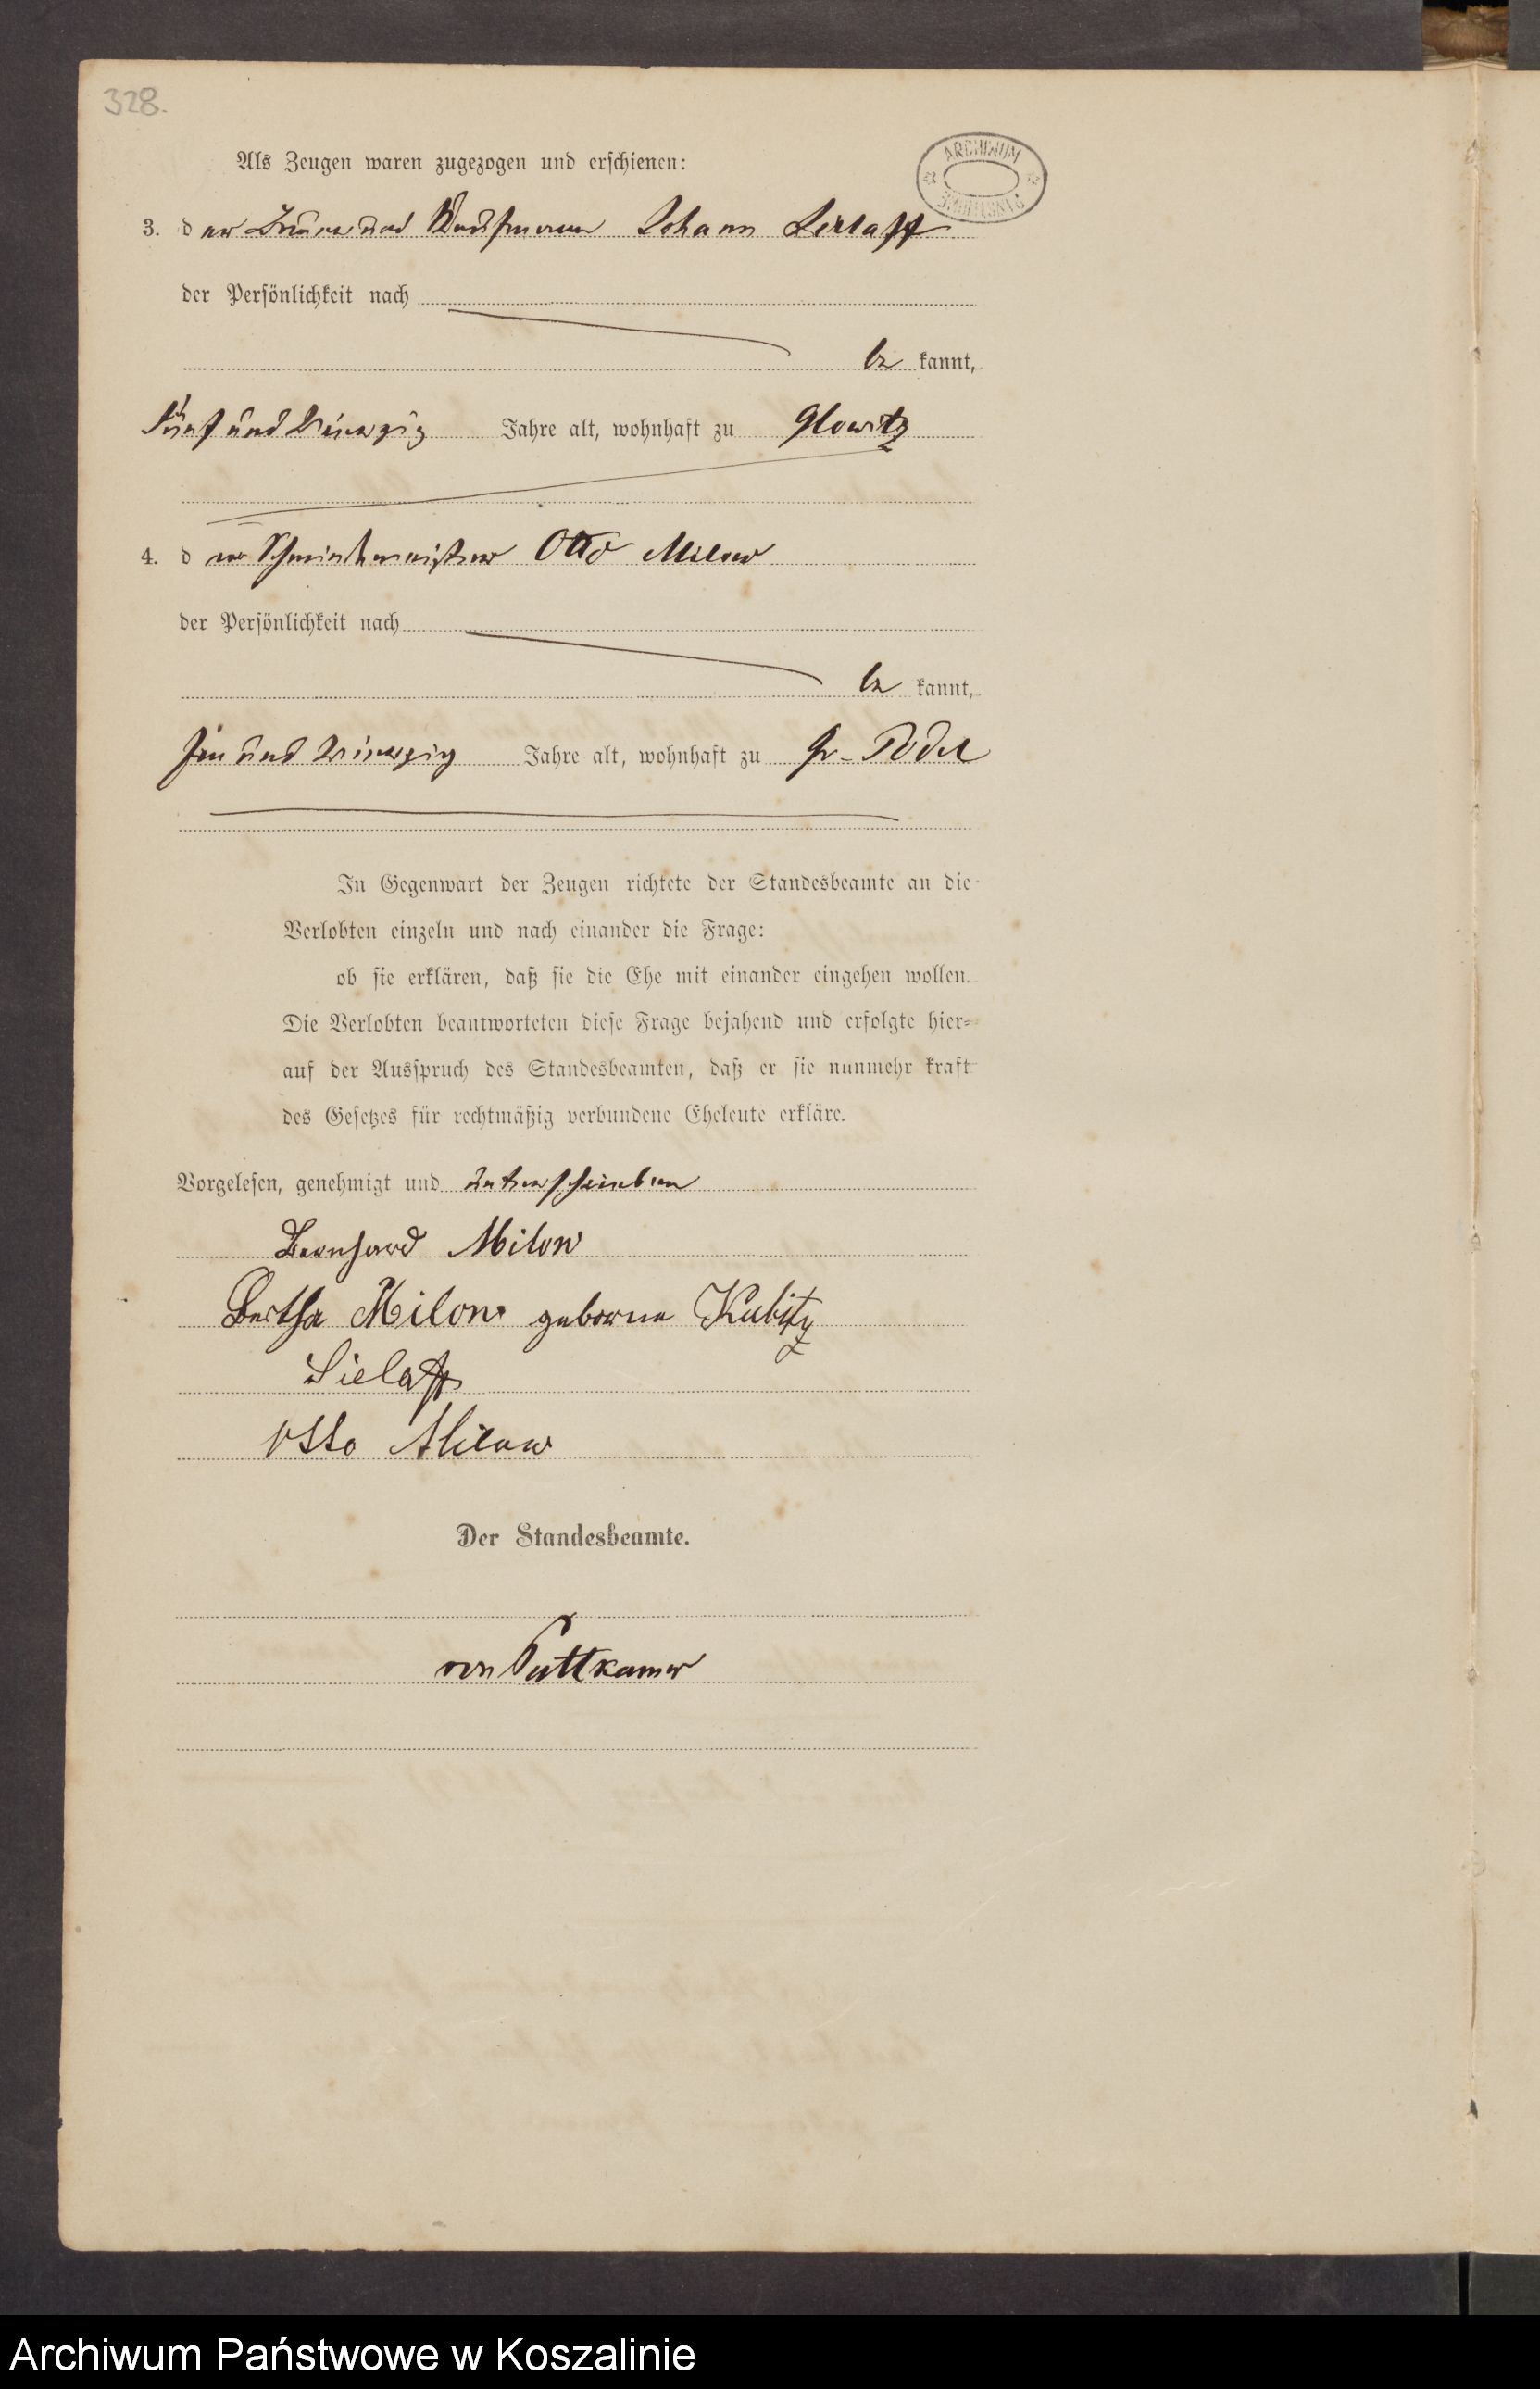 328.
ARCHIWUM
Als Zeugen waren zugezogen und erschienen:
3. der Johann Sielaff
der Persönlichkeit nach
be kannt,
Fünf und Jahre alt, wohnhaft zu Glowitz
4. der Schmiedemeister Otto Milow
der Persönlichkeit nach
be kannt,
und Jahre alt, wohnhaft zu Gr. Podel
In Gegenwart der Zeugen richtete der Standesbeamte an die
Verlobten einzeln und nach einander die Frage:
ob sie erklären, daß sie die Ehe mit einander eingehen wollen.
Die Verlobten beantworteten diese Frage bejahend und erfolgte hier-
auf der Ausspruch des Standesbeamten, daß er sie nunmehr kraft
des Gesetzes für rechtmäßig verbundene Eheleute erkläre.
Vorgelesen, genehmigt und unterschrieben
Bernhard Milow
Bertha Milow geborne Kubitz
Sielaff
Otto Milow
Der Standesbeamte.
von Puttkamer
Archiwum Państwowe w Koszalinie